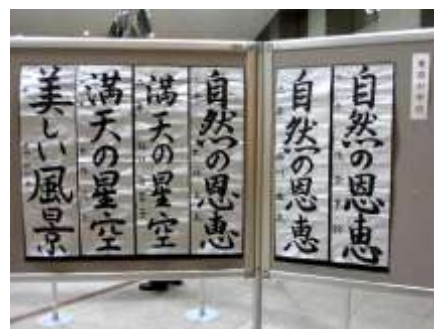 自然の恩恵
自然の恩恵
自然の恩恵
満天の星空
満天の星空
美しい風景